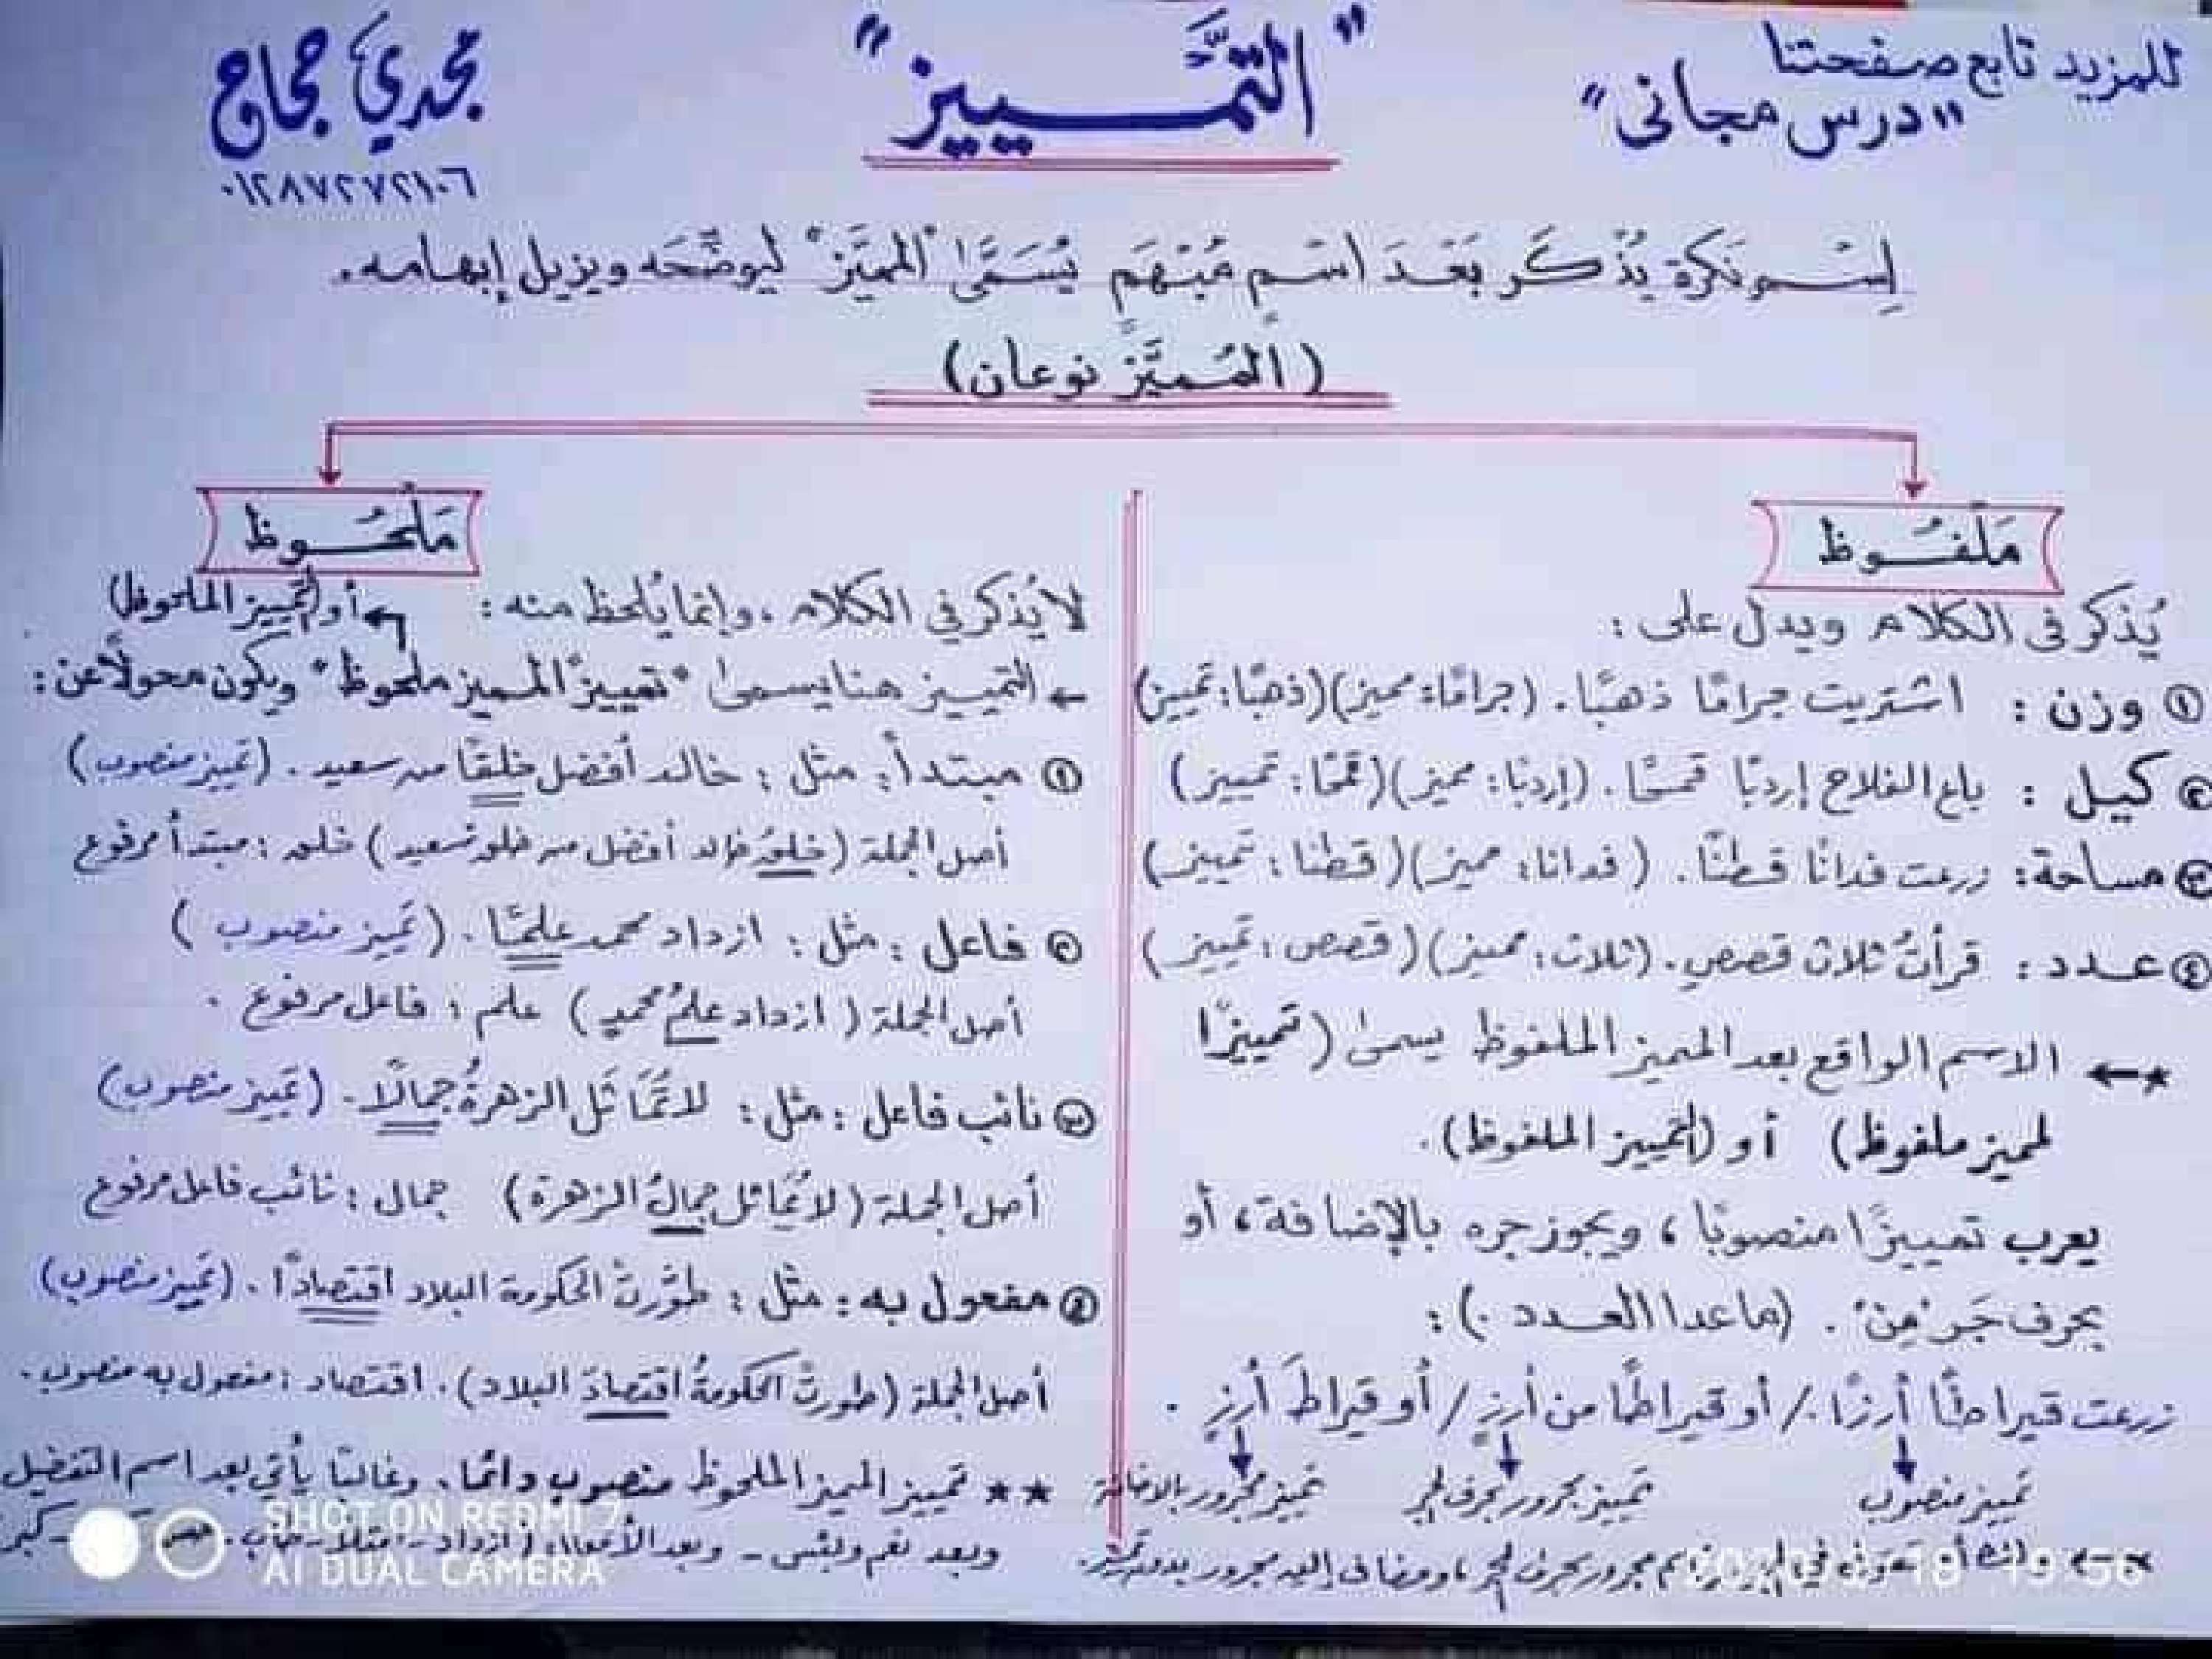 للمزيد تابع صفحتنا
"درس مجاني"
"التَّمْـــييز"
مجدي حجاج
٠١٢٨٧٢٧٢١٠٦
اِسْـم نَكِرة يُذْكَر بَعْدَ اسْمٍ مُبْهَمٍ يُسَمَّىٰ "المميَّز" ليوضِّحَه ويزيل إبهامه.
(المُـميَّز نوعان)
مَلْفُـوظ
يُذكر في الكلام ويدل على:
① وزن: اشتريت جرامًا ذهبًا. (جرامًا: مميز)(ذهبًا: تمييز)
② كيل: باع الفلاح إردبًا قمحًا. (إردبًا: مميز)(قمحًا: تمييز)
③ مساحة: زرعت فدانًا قطنًا. (فدانا: مميز)(قطنا: تمييز)
④ عـدد: قرأتُ ثلاث قصصٍ. (ثلاث: مميز)(قصص: تمييز)
★← الاسم الواقع بعد المميز الملفوظ يسمىٰ (تمييزًا
لمميز ملفوظ) أو (التمييز الملفوظ).
يعرب تمييزًا منصوبًا، ويجوز جره بالإضافة، أو
بحرف جَر "مِن". (ماعدا العـدد.):
زرعت قيراطًا أرزًا./ أو قيراطًا من أرزٍ / أو قيراطَ أرزٍ.
تمييز منصوب
تمييز مجرور بحرف الجر
تمييز مجرور بالاضافة
اسم مجرور بحرف الجر، ومضاف إليه مجرور بدون تمييز.
مَلْحُـوظ
لا يُذكر في الكلام، وإنما يُلحظ منه:
أو (التمييز الملحوظ)
← التمييز هنا يسمىٰ "تمييزًا لمميز ملحوظ" ويكون محولًا عن:
① مبتدأ: مثل: خالد أفضل خلقًا من سعيد. (تمييز منصوب)
أصل الجملة (خلقُ خالد أفضل من خلق سعيد) خلق: مبتدأ مرفوع
② فاعل: مثل: ازداد محمد علمًا. (تمييز منصوب)
أصل الجملة (ازداد علمُ محمدٍ) علم: فاعل مرفوع.
③ نائب فاعل: مثل: لا تُمَاثَل الزهرةُ جمالًا. (تمييز منصوب)
أصل الجملة (لا يُمَاثل جمالُ الزهرة) جمال: نائب فاعل مرفوع
④ مفعول به: مثل: طوَّرتْ الحكومة البلاد اقتصادًا. (تمييز منصوب)
أصل الجملة (طورتْ الحكومةُ اقتصادَ البلاد). اقتصاد: مفعول به منصوب.
★★ تمييز المميز الملحوظ منصوب دائمًا. وغالبًا يأتي بعد اسم التفضيل
وبعد نعم وبئس - وبعد الأفعال (ازداد - امتلأ - طاب - كبر
SHOT ON REDMI 7
AI DUAL CAMERA